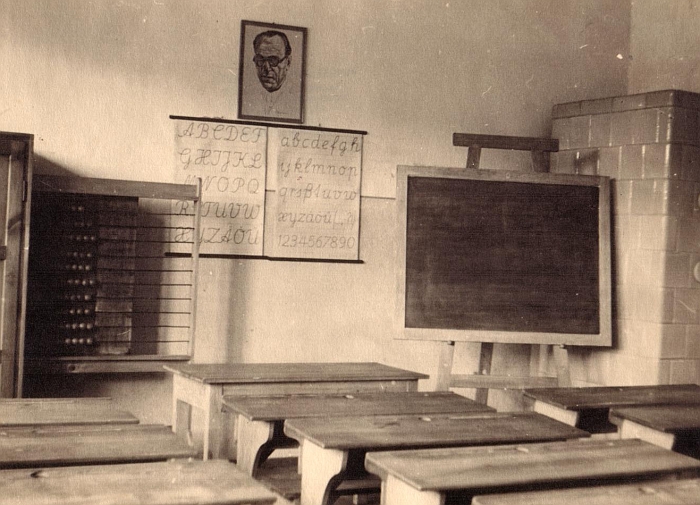 ABCDEF
GHIJKL
MNOPQ
RSTUVW
XYZÄÖÜ
abcdefgh
ijklmnop
qrsßtuvw
xyzäöü
1234567890